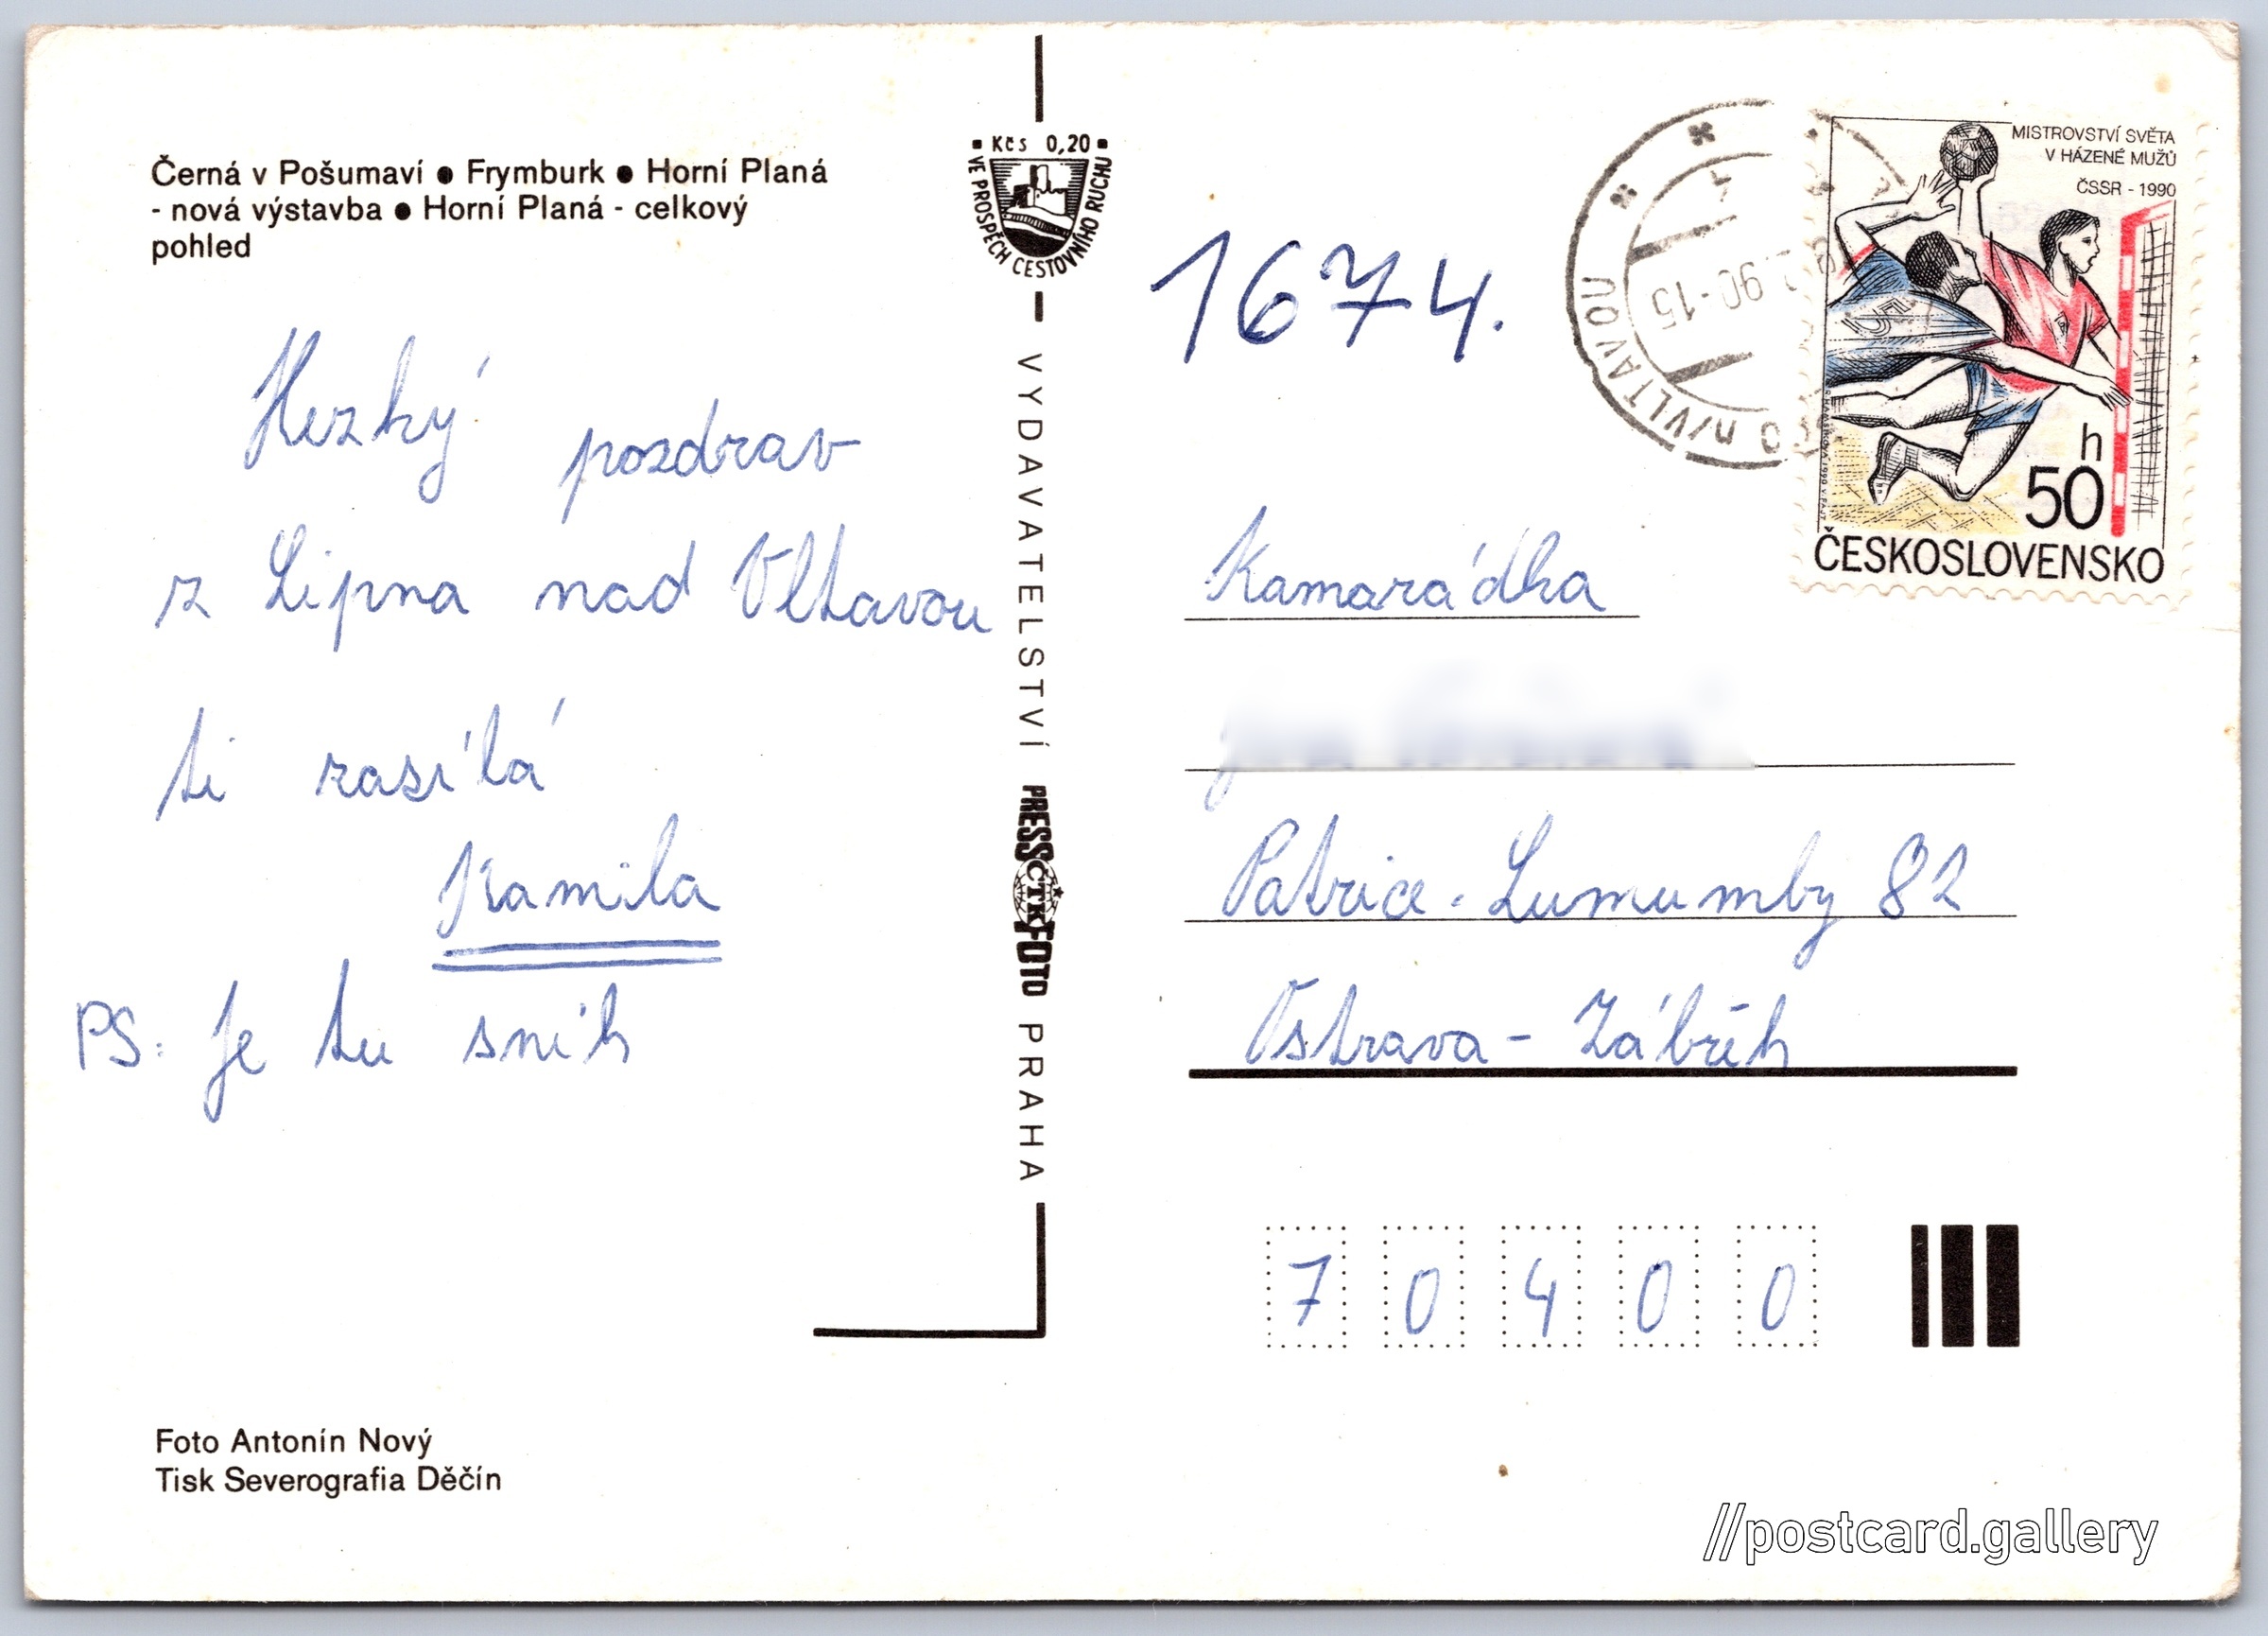 Černá v Pošumaví ● Frymburk ● Horní Planá
- nová výstavba ● Horní Planá - celkový
pohled
Hezký pozdrav
z Lipna nad Vltavou
ti zasílá
Kamila
PS: Je tu sníh
Foto Antonín Nový
Tisk Severografia Děčín
Kčs 0,20
VE PROSPĚCH CESTOVNÍHO RUCHU
VYDAVATELSTVÍ PRESSFOTO PRAHA
ČTK
1674.
N/VLTAVOU
.90-15
MISTROVSTVÍ SVĚTA
V HÁZENÉ MUŽŮ
ČSSR - 1990
h
50
ČESKOSLOVENSKO
Kamarádka
Patrice. Lumumby 82
Ostrava - Zábřeh
7 0 4 0 0
//postcard.gallery